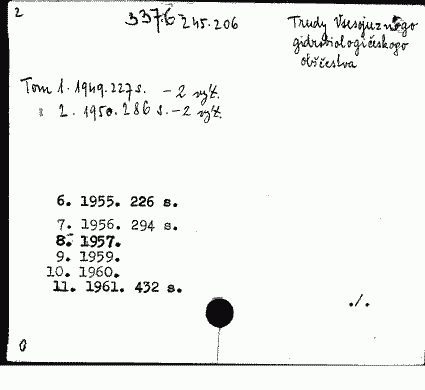 2
3376 245.206
Trudy Vsesojuznogo
gidrobiologičeskogo
obščestva
Tom 1. 1949. 227 s. - 2 vyt.
" 2. 1950. 286 s. - 2 vyt.
6. 1955. 226 s.
7. 1956. 294 s.
8. 1957.
9. 1959.
10. 1960.
11. 1961. 432 s.
./.
0